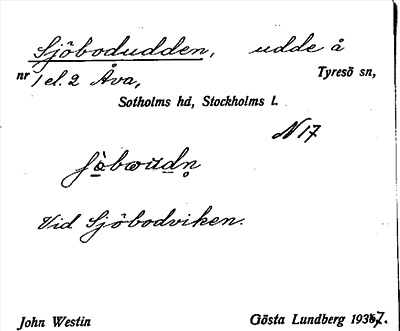 Sjöbodudden, udde å
nr 1 el. 2 Åva, Tyresö sn,
Sotholms hd, Stockholms l.
N 17
Vid Sjöbodviken.
John Westin Gösta Lundberg 1937.